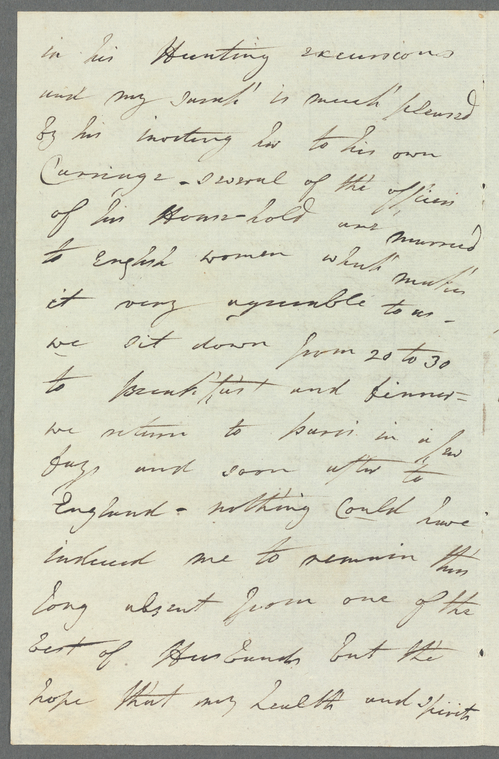 in his Hunting excursions
and my Sarah is much pleased
by his inviting her to his own
Carriage - several of the officers
of his House-hold are married
to English women which makes
it very agreeable to us -
we sit down from 20 to 30
to breakfast and dinner -
we return to Paris in a few
days and soon after to
England - nothing could have
induced me to remain thus
long absent from one of the
best of Husbands but the
hope that my health and spirits